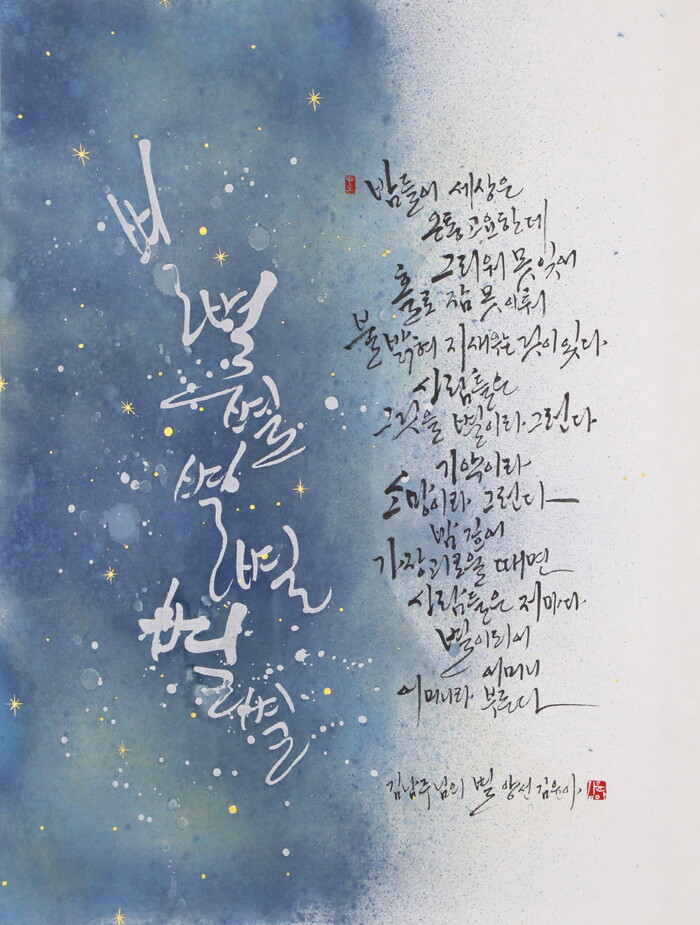 별
별
별
별
별
별
별
밤들어 세상은
온통 고요한데
그리워 못 잊어
홀로 잠 못 이뤄
불 밝혀 지새우는 것이 있다.
사람들은
그것을 별이라 그런다
기약이라
소망이라 그런다
밤 깊어
가장 괴로울 때면
사람들은 저마다
별이 되어
어머니
어머니라 부른다
김남주님의 별 양선 김윤아